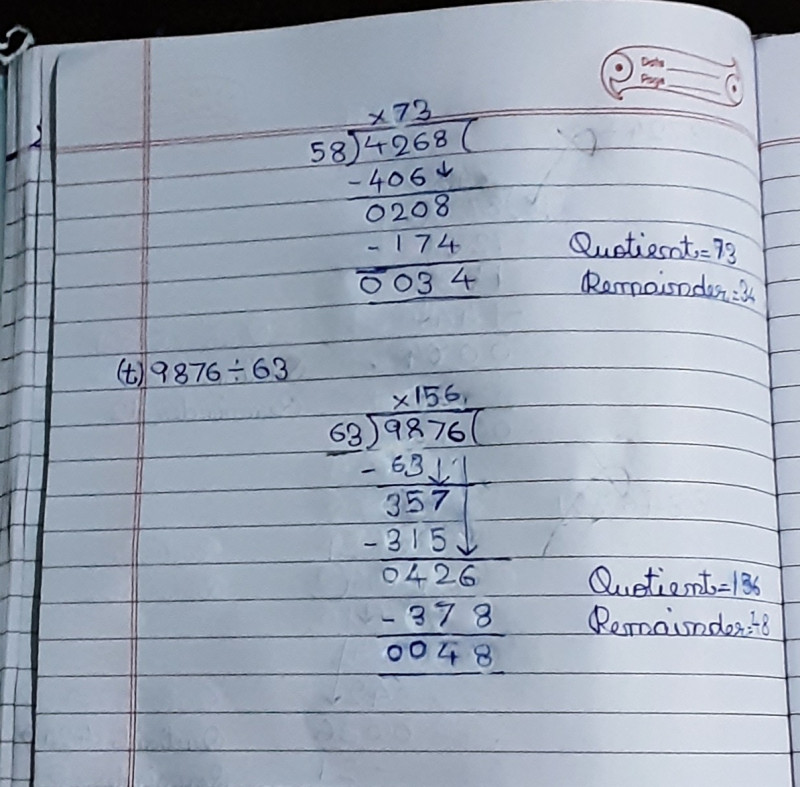 Date
Page
×73
58)4268(
-406↓
0208
-174
Quotient=73
0034
Remainder=34
(t) 9876÷63
×156
63)9876(
-63↓
357
-315↓
0426
Quotient=156
-378
Remainder=48
0048